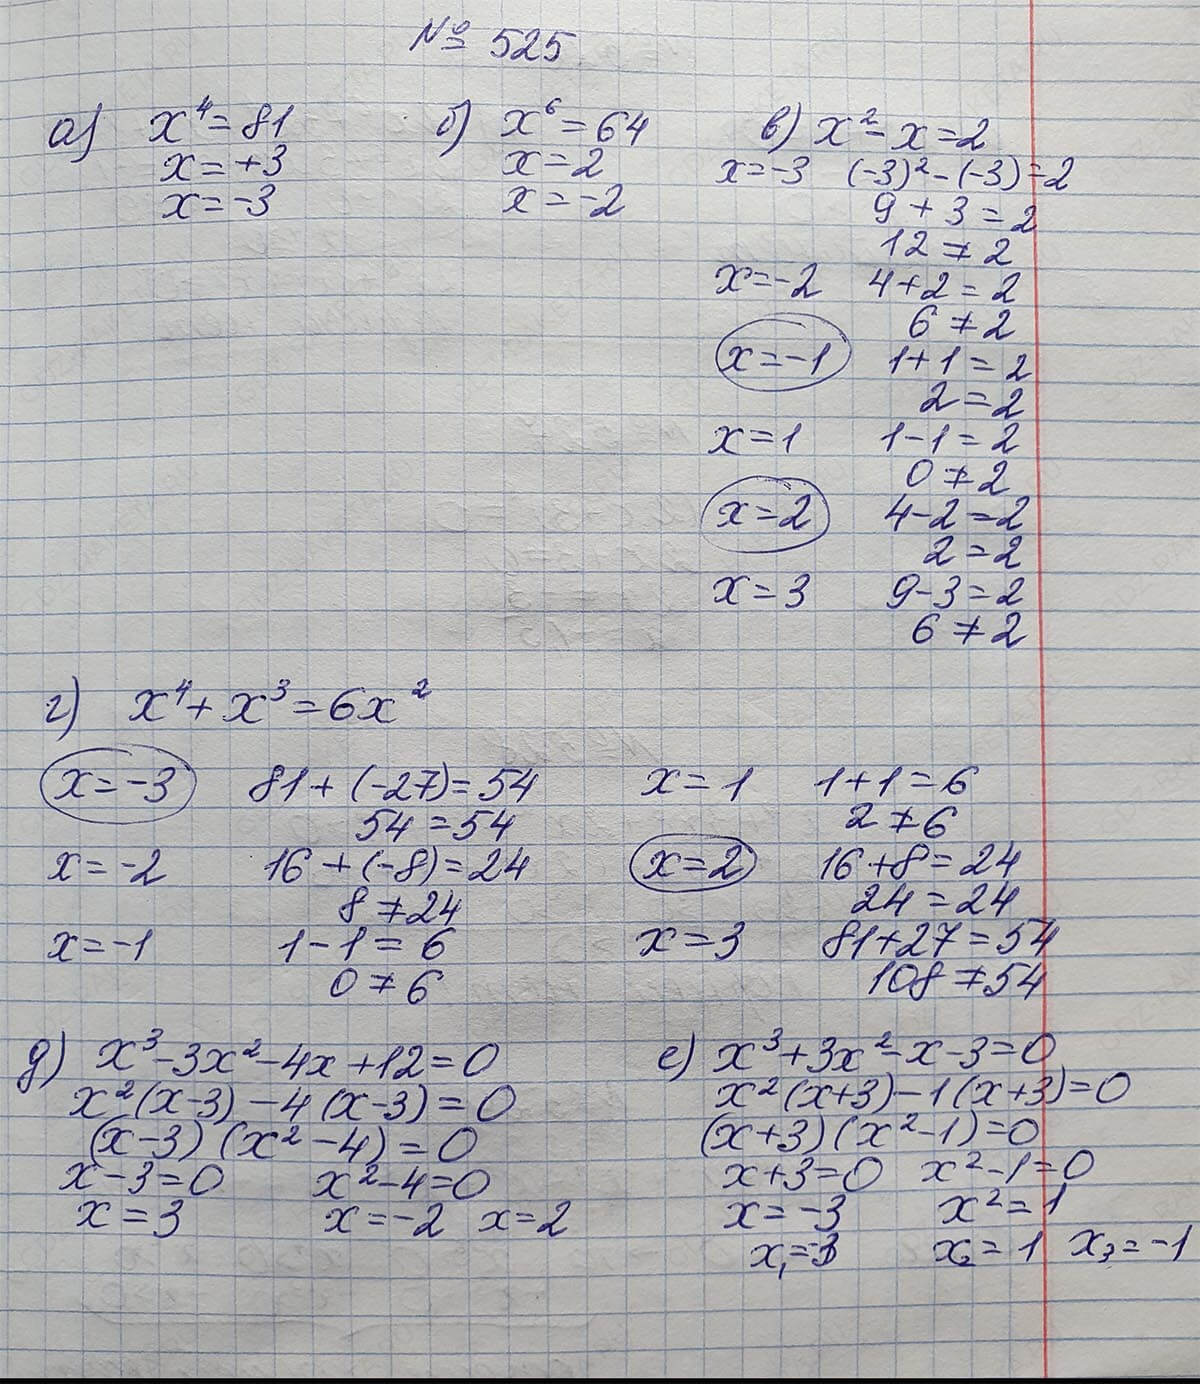 № 525
а) x⁴ = 81
x = +3
x = -3
б) x⁶ = 64
x = 2
x = -2
в) x² - x = 2
x = -3 (-3)² - (-3) = 2
9 + 3 = 2
12 ≠ 2
x = -2 4 + 2 = 2
6 ≠ 2
x = -1 1 + 1 = 2
2 = 2
x = 1 1 - 1 = 2
0 ≠ 2
x = 2 4 - 2 = 2
2 = 2
x = 3 9 - 3 = 2
6 ≠ 2
г) x⁴ + x³ = 6x²
x = -3 81 + (-27) = 54
54 = 54
x = -2 16 + (-8) = 24
8 ≠ 24
x = -1 1 - 1 = 6
0 ≠ 6
x = 1 1 + 1 = 6
2 ≠ 6
x = 2 16 + 8 = 24
24 = 24
x = 3 81 + 27 = 54
108 ≠ 54
д) x³ - 3x² - 4x + 12 = 0
x² (x - 3) - 4 (x - 3) = 0
(x - 3) (x² - 4) = 0
x - 3 = 0 x² - 4 = 0
x = 3 x = -2 x = 2
е) x³ + 3x² - x - 3 = 0
x² (x + 3) - 1 (x + 3) = 0
(x + 3) (x² - 1) = 0
x + 3 = 0 x² - 1 = 0
x = -3 x² = 1
x₁ = -3 x₂ = 1 x₃ = -1